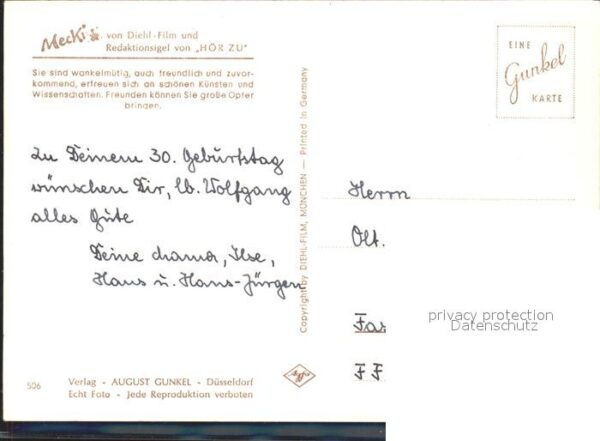 Mecki von Diehl-Film und
Redaktionsigel von „HÖR ZU"
Sie sind wankelmütig, auch freundlich und zuvor-
kommend, erfreuen sich an schönen Künsten und
Wissenschaften. Freunden können Sie große Opfer
bringen.
EINE
Gunkel
KARTE
Zu Deinem 30. Geburtstag
wünschen Dir, lb. Wolfgang
alles Gute
Deine Mama, Ilse,
Hans u. Hans-Jürgen
Copyright by DIEHL-FILM, MÜNCHEN — Printed in Germany
Herrn
Olt.
privacy protection
Datenschutz
F F
506
Verlag - AUGUST GUNKEL - Düsseldorf
Echt Foto - Jede Reproduktion verboten
Agfa